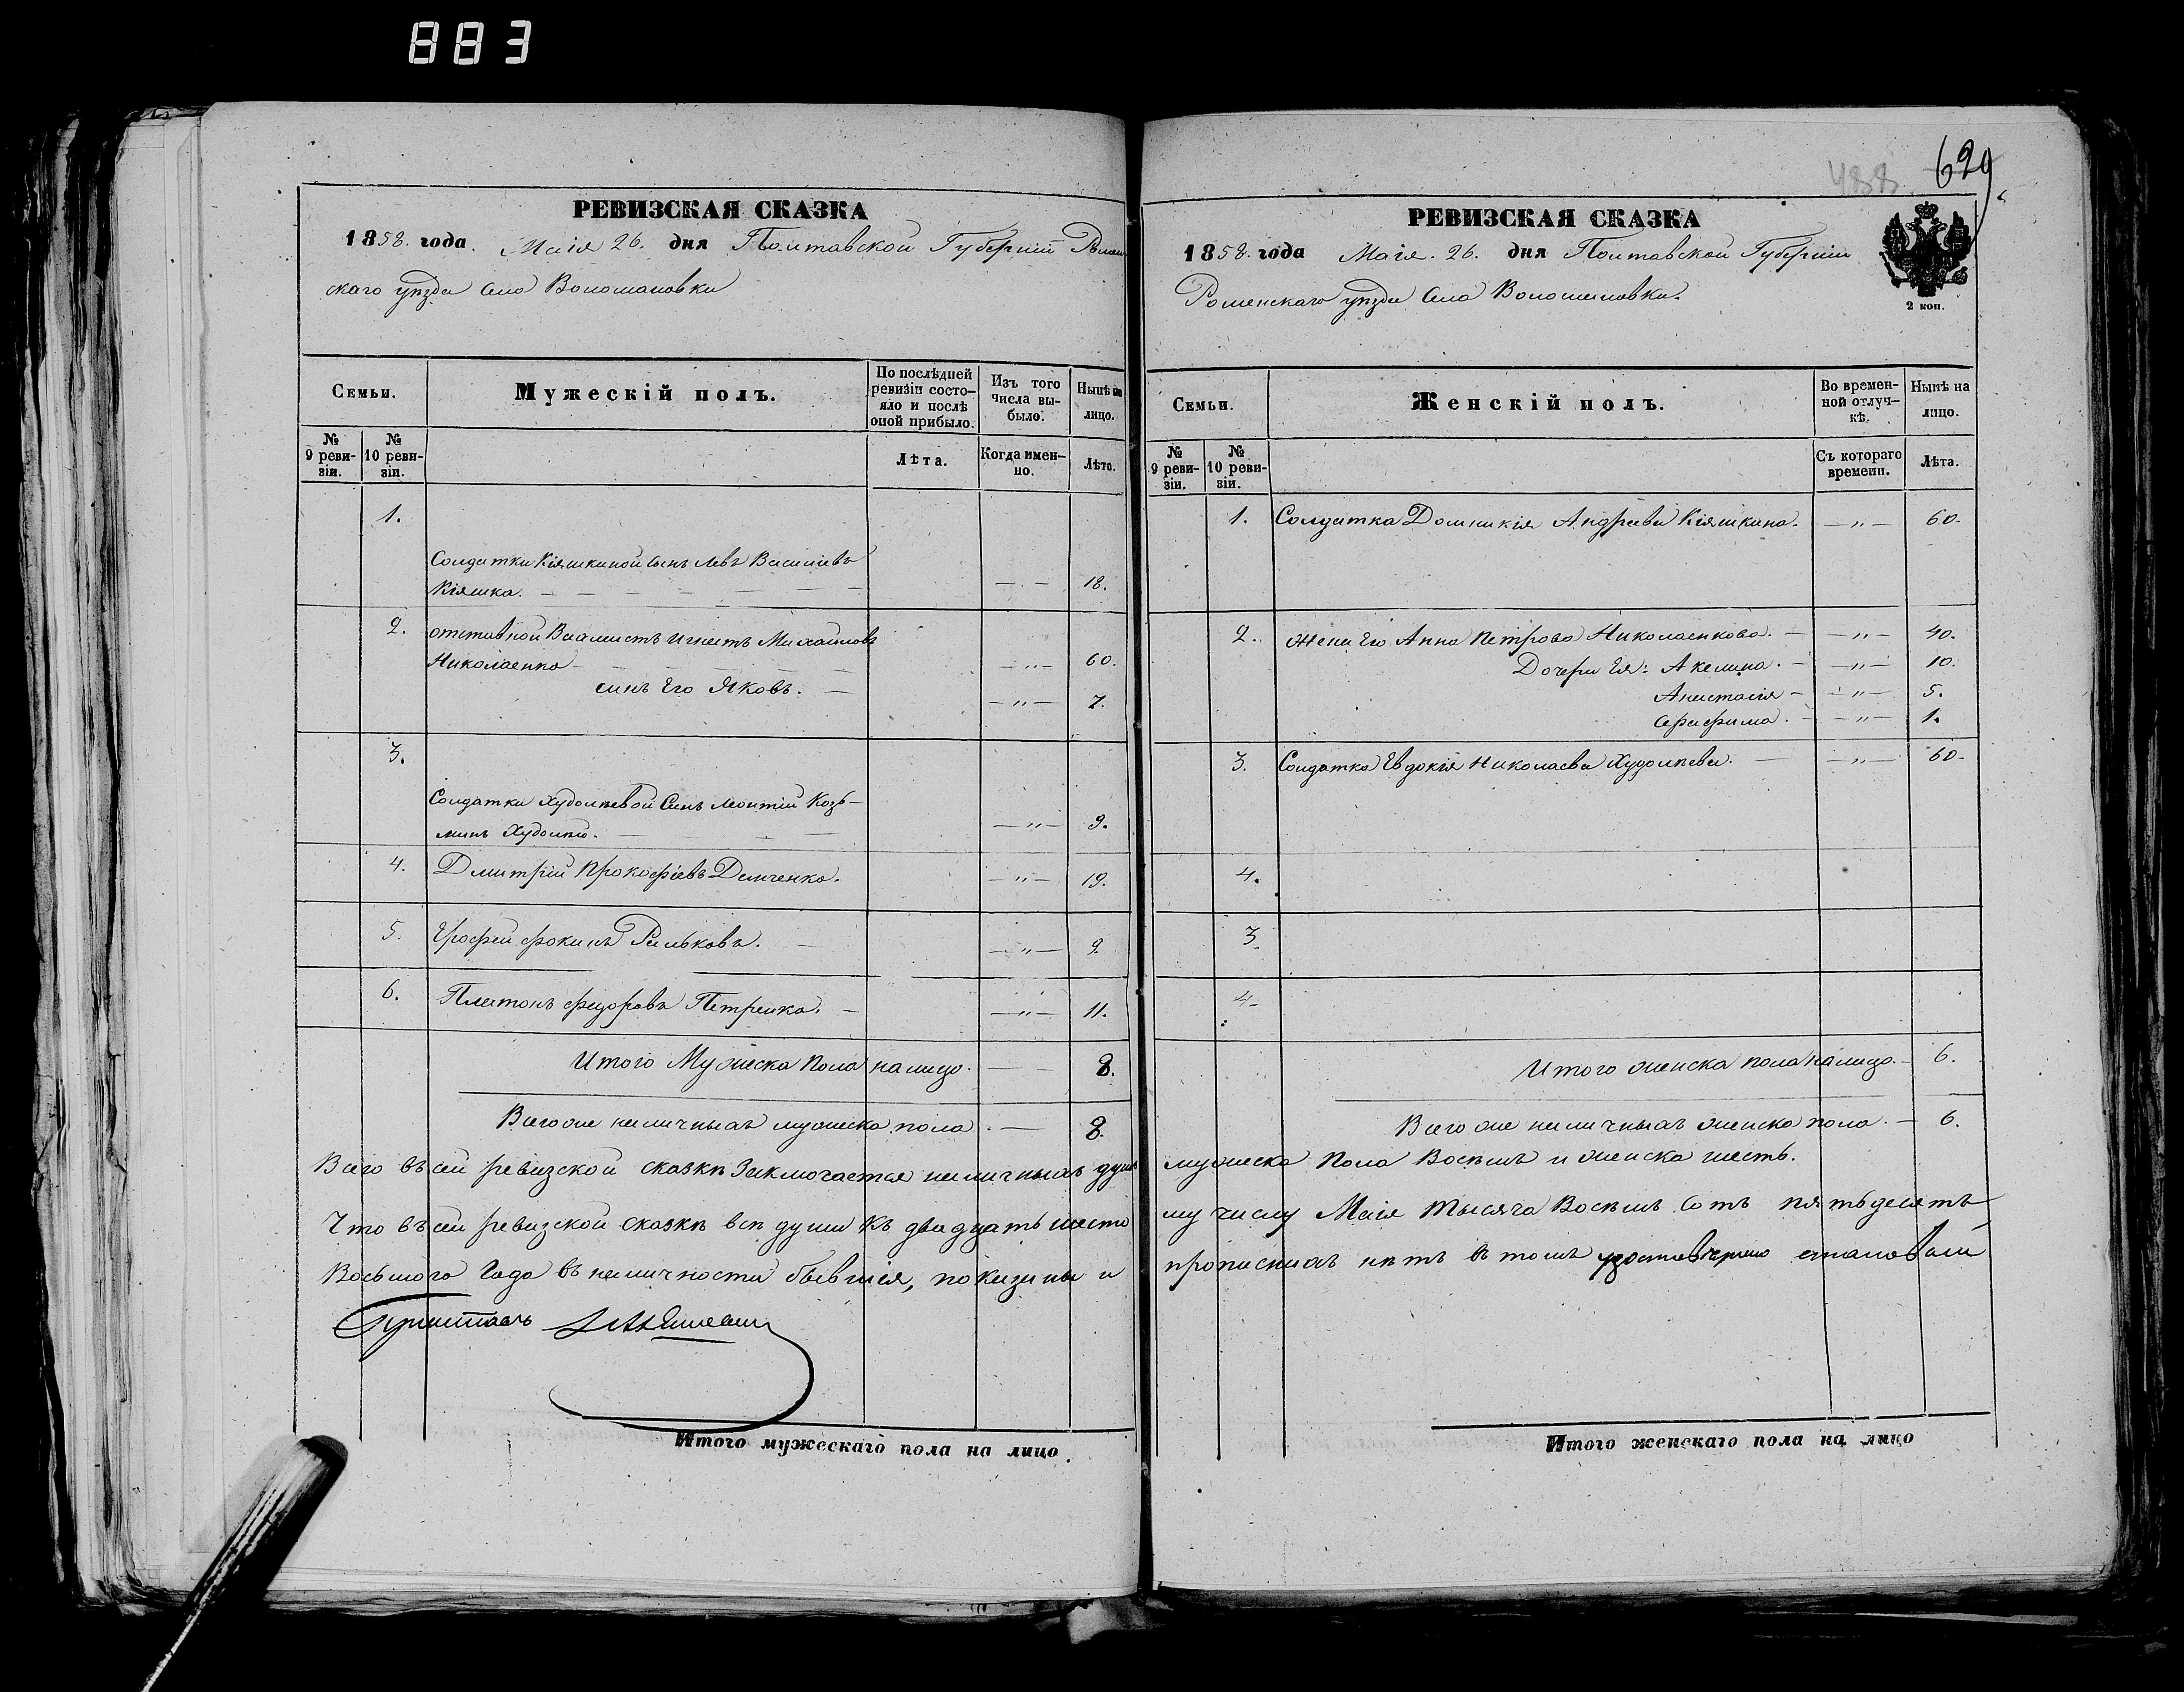 883
488
629
РЕВИЗСКАЯ СКАЗКА
1858. года. Маія 26. дня Полтавской Губерніи Ромен
скаго уѣзда Село Волошиновки
Семьи.
Мужескій полъ.
По послѣдней ревизіи состояло и послѣ оной прибыло.
Изъ того числа выбыло.
Нынѣ на лицо.
№ 9 ревизіи.
№ 10 ревизіи.
Лѣта.
Когда именно.
Лѣта.
1.
Солдатки Кіяшкиной Сынъ Левъ Василіевъ
Кіяшка. — — 18.
2. отставной Игнатъ Михайловъ
Николаенко — „ — 60.
сынъ Его Яковъ. — „ — 7.
3.
Солдатки Худолѣевой Сынъ Леонтій Козь-
минъ Худолѣй. — „ — 9.
4. Дмитрій Прокофіевъ Демченко. — „ — 19.
5. Ерофей Фокинъ Рильковъ. — „ — 9
6. Платонъ Федоровъ Петренко. — „ — 11.
Итого Мужеска Пола налицо. — 8.
Всего же наличныхъ мужеска пола. — 8.
Всего въ сей ревизской сказкѣ Заключается наличныхъ душъ
Что въ сей ревизской сказкѣ всѣ души къ двадцать шесто
Восьмого Года въ наличности бывшія, показаны и
Приставъ
Итого мужескаго пола на лицо.
РЕВИЗСКАЯ СКАЗКА
1858. года Маія. 26. дня Полтавской Губерніи
Роменскаго уѣзда Села Волошиновки.
2 коп.
Семьи.
Женскій полъ.
Во временной отлучкѣ.
Нынѣ на лицо.
№ 9 ревизіи.
№ 10 ревизіи.
Съ котораго времени.
Лѣта.
1. Солдатка Домникія Андреева Кіяшкина. — „ — 60.
2. Жена Его Анна Петрова Николаенкова. — „ — 40.
Дочери Ея: Акелина. — „ — 10.
Анастасія — „ — 5.
Серафима. — „ — 1.
3. Солдатка Евдокія Николаева Худолѣева. — „ — 60.
4.
3
4
Итого женска пола налицо. — 6.
Всего же наличныхъ женска пола. — 6.
мужеска Пола Восѣмъ и женска шесть.
му числу Маія Тысяча Восѣмъ Сотъ пятьдесятъ
прописныхъ нѣтъ въ томъ становой
Итого женскаго пола на лицо